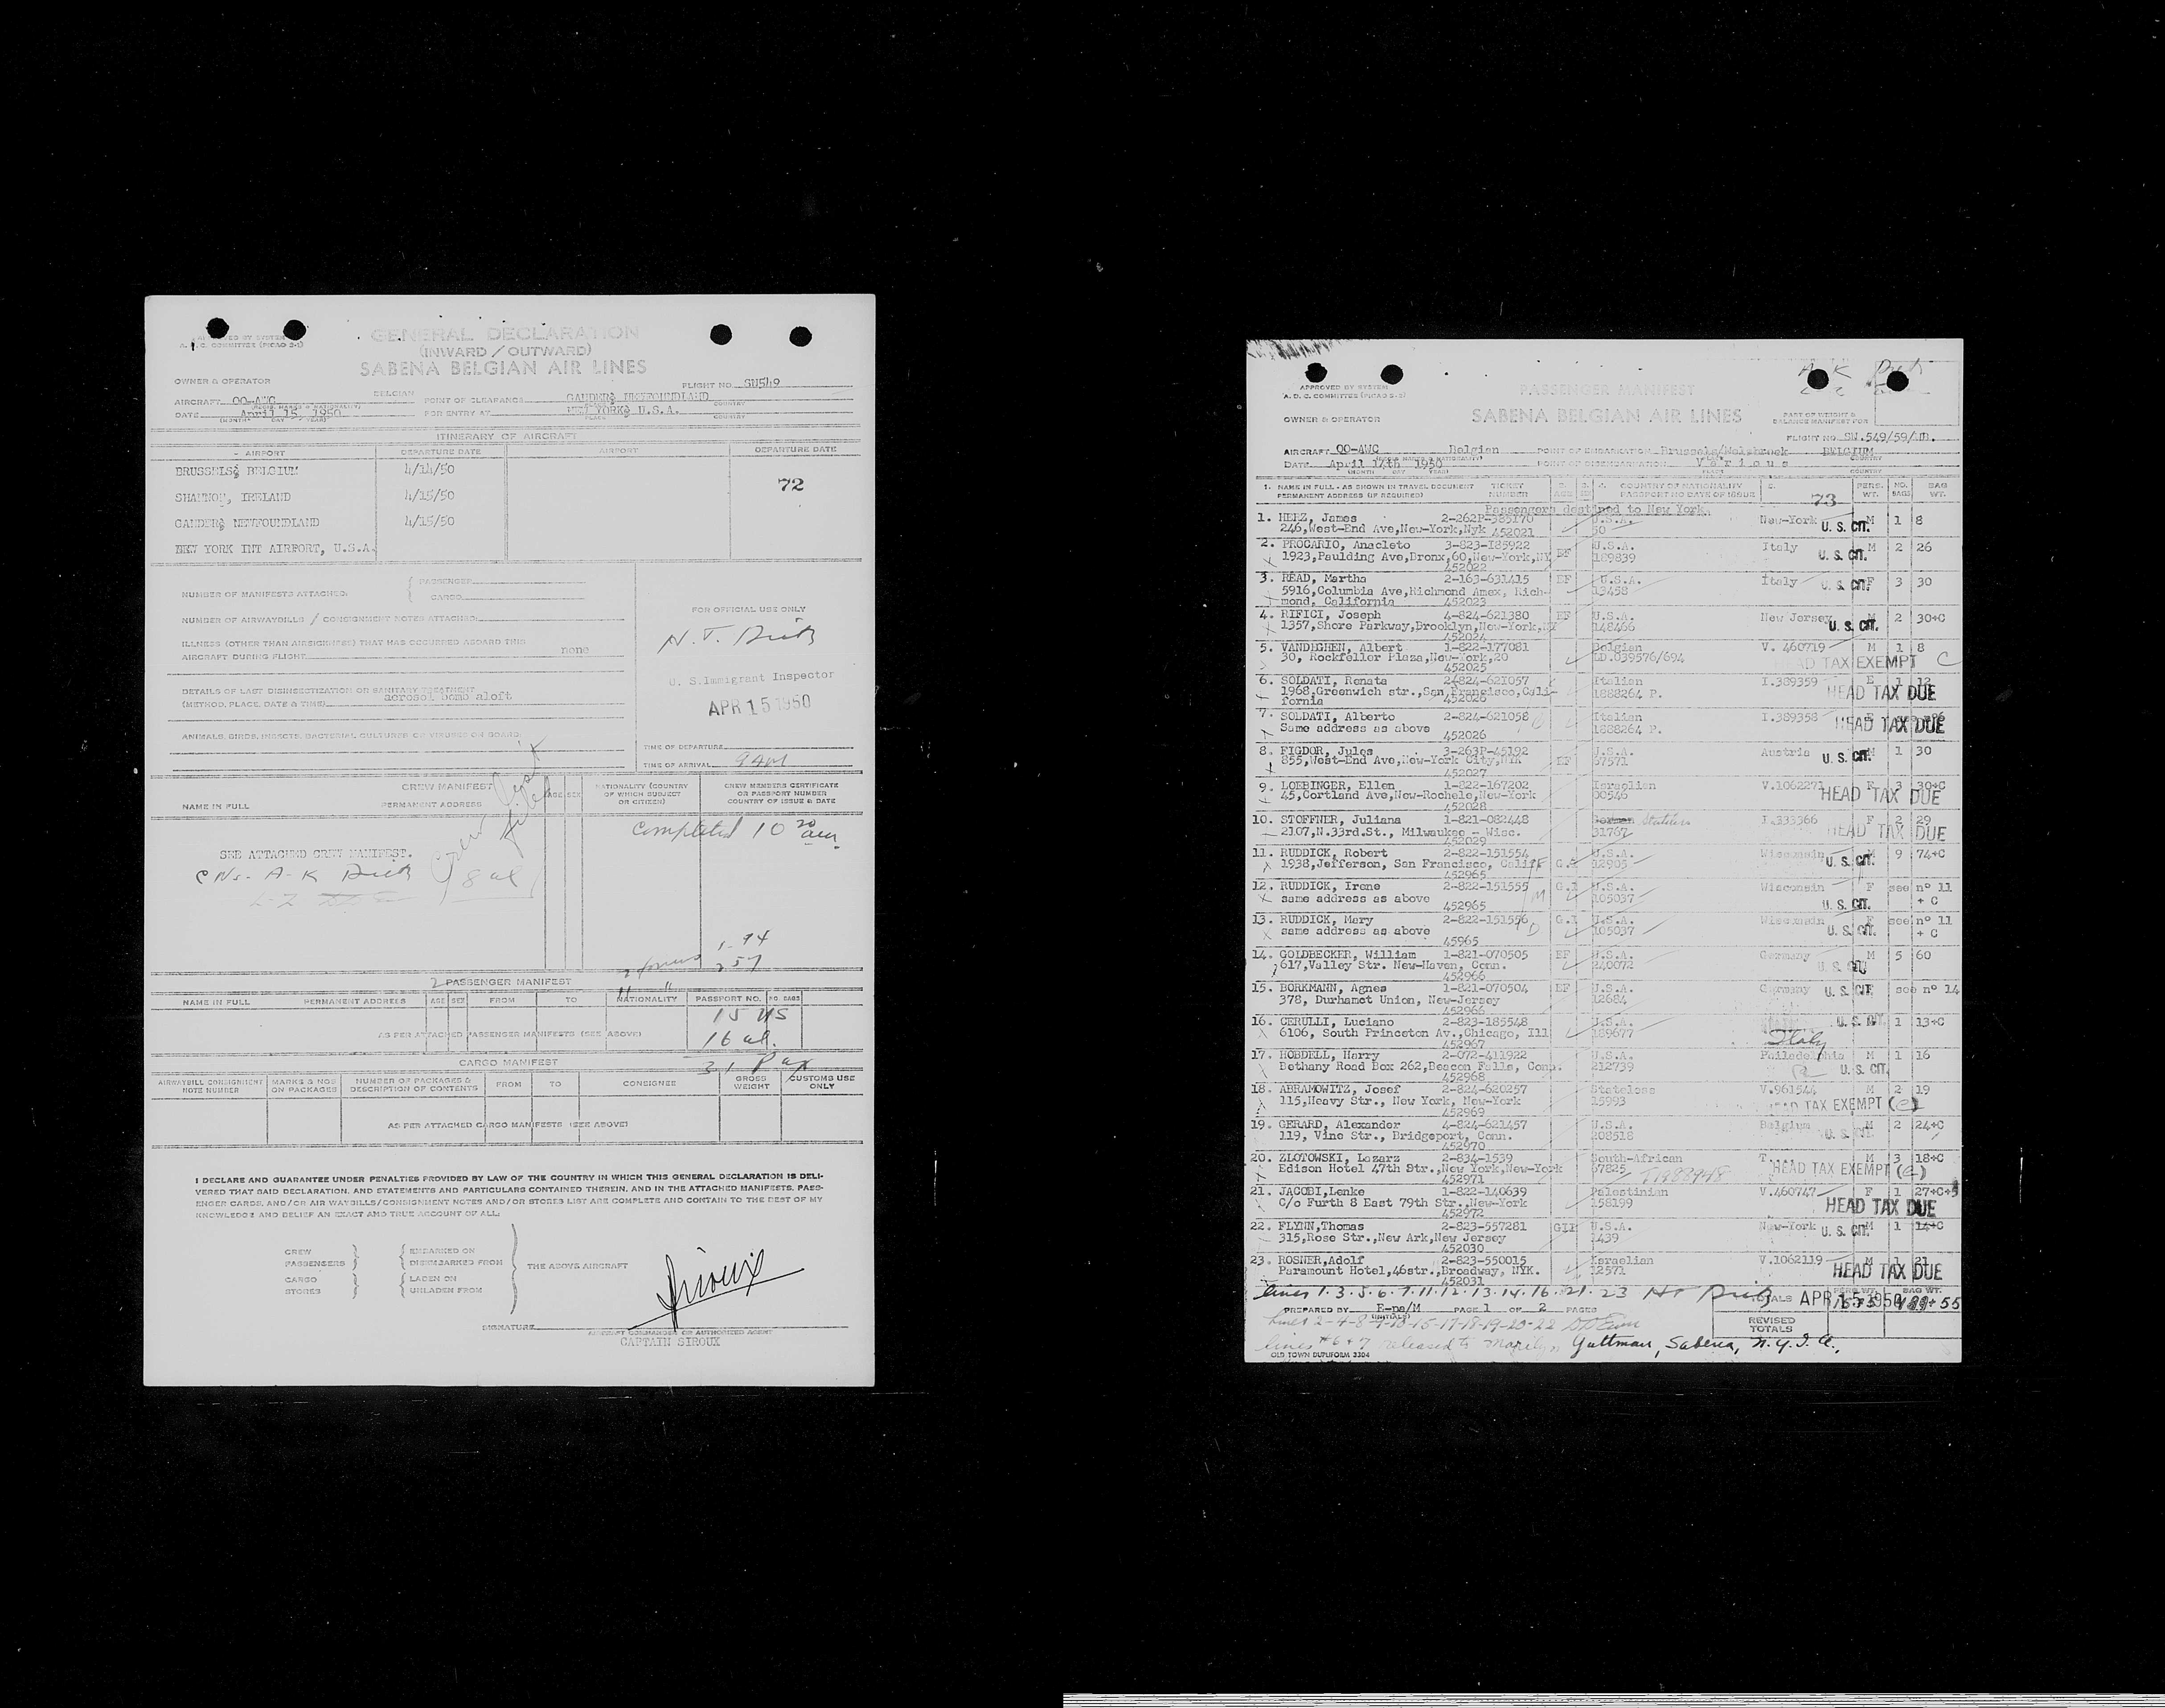 GENERAL DECLARATION
(INWARD / OUTWARD)
A. D. C. COMMITTEE (PICAO S-1)
SABENA BELGIAN AIR LINES
OWNER & OPERATOR
FLIGHT NO. SU549
AIRCRAFT OO-AWC BELGIAN POINT OF CLEARANCE GANDER, NEWFOUNDLAND
DATE April 15 1950 FOR ENTRY AT NEW YORK, U.S.A.
ITINERARY OF AIRCRAFT
AIRPORT DEPARTURE DATE AIRPORT DEPARTURE DATE
BRUSSELS, BELGIUM 4/14/50
72
SHANNON, IRELAND 4/15/50
GANDER, NEWFOUNDLAND 4/15/50
NEW YORK INT AIRPORT, U.S.A.
NUMBER OF MANIFESTS ATTACHED: { PASSENGER
CARGO
FOR OFFICIAL USE ONLY
NUMBER OF AIRWAYBILLS / CONSIGNMENT NOTES ATTACHED
ILLNESS (OTHER THAN AIRSICKNESS) THAT HAS OCCURRED ABOARD THIS
AIRCRAFT DURING FLIGHT none
U. S. Immigrant Inspector
DETAILS OF LAST DISINSECTIZATION OR SANITARY TREATMENT
(METHOD, PLACE, DATE & TIME) aerosol bomb aloft
APR 15 1950
ANIMALS, BIRDS, INSECTS, BACTERIAL CULTURES OR VIRUSES ON BOARD:
TIME OF DEPARTURE
TIME OF ARRIVAL 9 AM
CREW MANIFEST
NAME IN FULL PERMANENT ADDRESS AGE SEX NATIONALITY (COUNTRY OF WHICH SUBJECT OR CITIZEN) CREW MEMBERS CERTIFICATE OR PASSPORT NUMBER COUNTRY OF ISSUE & DATE
completed 10 20 am
SEE ATTACHED CREW MANIFEST.
8 al
2 PASSENGER MANIFEST
NAME IN FULL PERMANENT ADDRESS AGE SEX FROM TO NATIONALITY PASSPORT NO. NO. BAGS
15 US
AS PER ATTACHED PASSENGER MANIFESTS (SEE ABOVE)
16 al.
31 Pax
CARGO MANIFEST
AIRWAYBILL CONSIGNMENT NOTE NUMBER MARKS & NOS ON PACKAGES NUMBER OF PACKAGES & DESCRIPTION OF CONTENTS FROM TO CONSIGNEE GROSS WEIGHT CUSTOMS USE ONLY
AS PER ATTACHED CARGO MANIFESTS (SEE ABOVE)
I DECLARE AND GUARANTEE UNDER PENALTIES PROVIDED BY LAW OF THE COUNTRY IN WHICH THIS GENERAL DECLARATION IS DELI-
VERED THAT SAID DECLARATION, AND STATEMENTS AND PARTICULARS CONTAINED THEREIN, AND IN THE ATTACHED MANIFESTS, PASS-
ENGER CARDS, AND/OR AIR WAYBILLS/CONSIGNMENT NOTES AND/OR STORES LIST ARE COMPLETE AND CONTAIN TO THE BEST OF MY
KNOWLEDGE AND BELIEF AN EXACT AND TRUE ACCOUNT OF ALL:
CREW } { EMBARKED ON
PASSENGERS } { DISEMBARKED FROM THE ABOVE AIRCRAFT
CARGO } { LADEN ON
STORES } { UNLADEN FROM
Siroux
SIGNATURE
AIRCRAFT COMMANDER OR AUTHORIZED AGENT
CAPTAIN SIROUX
APPROVED BY SYSTEM
A. D. C. COMMITTEE (PICAO S-2)
PASSENGER MANIFEST
SABENA BELGIAN AIR LINES
OWNER & OPERATOR
PART OF WEIGHT & BALANCE MANIFEST FOR
FLIGHT NO. SN.549/59/HD.
AIRCRAFT OO-AWC Belgian POINT OF EMBARKATION Brussels/Melsbroek BELGIUM
DATE April 14th 1950 POINT OF DISEMBARKATION Various
1. NAME IN FULL - AS SHOWN IN TRAVEL DOCUMENT PERMANENT ADDRESS (IF REQUIRED) TICKET NUMBER AGE COUNTRY OF NATIONALITY PASSPORT NO DATE OF ISSUE 73 PERS. WT. NO. BAGS BAG WT.
Passengers destined to New York.
1. HERZ, James 2-262P-385170 U.S.A. New-York U. S. CIT. M 1 8
246, West-End Ave, New-York, Nyk 452021 50
2. PROCARIO, Anacleto 3-823-185922 EF U.S.A. Italy U. S. CIT. M 2 26
1923, Paulding Ave, Bronx, 60, New-York, NY 169839
452022
3. READ, Martha 2-163-631415 EF U.S.A. Italy U. S. CIT. F 3 30
5916, Columbia Ave, Richmond Amex, Rich- 13458
mond, California 452023
4. RIFICI, Joseph 4-824-621380 EF U.S.A. New Jersey U. S. CIT. M 2 30+C
1357, Shore Parkway, Brooklyn, New-York, NY 148466
452024
5. VANDEGHEN, Albert 1-822-177081 Belgian V. 460719 M 1 8
30, Rockfeller Plaza, New-York, 20 LD.039576/694 HEAD TAX EXEMPT C
452025
6. SOLDATI, Renata 2-824-621057 Italian I.389359 F 1 12
1968, Greenwich str., San Francisco, Cali- 1888264 P. HEAD TAX DUE
fornia 452026
7. SOLDATI, Alberto 2-824-621058 Italian I.389358 HEAD TAX DUE
Same address as above 452026 1888264 P.
8. FIGDOR, Jules 3-263P-45192 EF U.S.A. Austria U. S. CIT. M 1 30
855, West-End Ave, New-York City, NYK 67571
452027
9. LOEBINGER, Ellen 1-822-167202 Israelian V.1062271 F 3 30+C
45, Cortland Ave, New-Rochele, New-York 00546 HEAD TAX DUE
452028
10. STOFFNER, Juliana 1-821-082448 German Stateless I.333366 F 2 29
2107, N.33rd.St., Milwaukee - Wisc. 31767 HEAD TAX DUE
452029
11. RUDDICK, Robert 2-822-151554 U.S.A. Wisconsin U. S. CIT. M 9 74+C
1938, Jefferson, San Francisco, Calif 452965 12905
12. RUDDICK, Irene 2-822-151555 G.I U.S.A. Wisconsin U. S. CIT. F see nº 11 + C
same address as above 452965 105037
13. RUDDICK, Mary 2-822-151556 G.I U.S.A. Wisconsin U. S. CIT. F see nº 11 + C
same address as above 45965 105037
14. GOLDBECKER, William 1-821-070505 EF U.S.A. Germany U. S. CIT. M 5 60
617, Valley Str. New-Haven, Conn. 240072
452966
15. BORKMANN, Agnes 1-821-070504 EF U.S.A. Germany U. S. CIT. F see nº 14
378, Durhamct Union, New-Jersey 12684
452966
16. CERULLI, Luciano 2-823-185548 U.S.A. U. S. CIT. 1 13+C
6106, South Princeton Av., Chicago, Ill 189677 Italy
452967
17. HOBDELL, Harry 2-072-411922 U.S.A. Philadelphia M 1 16
Bethany Road Box 262, Beacon Falls, Conn. 212739 Pa U. S. CIT.
452968
18. ABRAMOWITZ, Josef 2-824-620257 Stateless V.961544 M 2 19
115, Heavy Str., New York, New-York 15993 HEAD TAX EXEMPT (e)
452969
19. GERARD, Alexander 4-824-621457 U.S.A. Belgium U. S. CIT. M 2 24+C
119, Vine Str., Bridgeport, Conn. 208518
452970
20. ZLOTOWSKI, Lazarz 2-834-1539 South-African T.... M 3 18+C
Edison Hotel 47th Str., New York, New-York 67825 HEAD TAX EXEMPT (e)
452971
21. JACOBI, Lenke 1-822-140639 Palestinian V.460747 F 1 27+C+5
C/o Furth 8 East 79th Str., New-York 158199 HEAD TAX DUE
452972
22. FLYNN, Thomas 2-823-557281 GII U.S.A. New-York U. S. CIT. M 1 14+C
315, Rose Str., New Ark, New Jersey 1439
452030
23. ROSNER, Adolf 2-823-550015 Israelian V.1062119 M 1 21
Paramount Hotel, 46str., Broadway, NYK. 12571 HEAD TAX DUE
452031
lines 1-3-5-6-7-11-12-13-14-16-21-23
TOTALS APR 15 1950
PREPARED BY E-pa/M PAGE 1 OF 2 PAGES
(INITIALS)
REVISED TOTALS
lines #6+7 released to Marilyn Guttman, Sabena, N.Y.I.A.,
OLD TOWN DUPLIFORM 3304